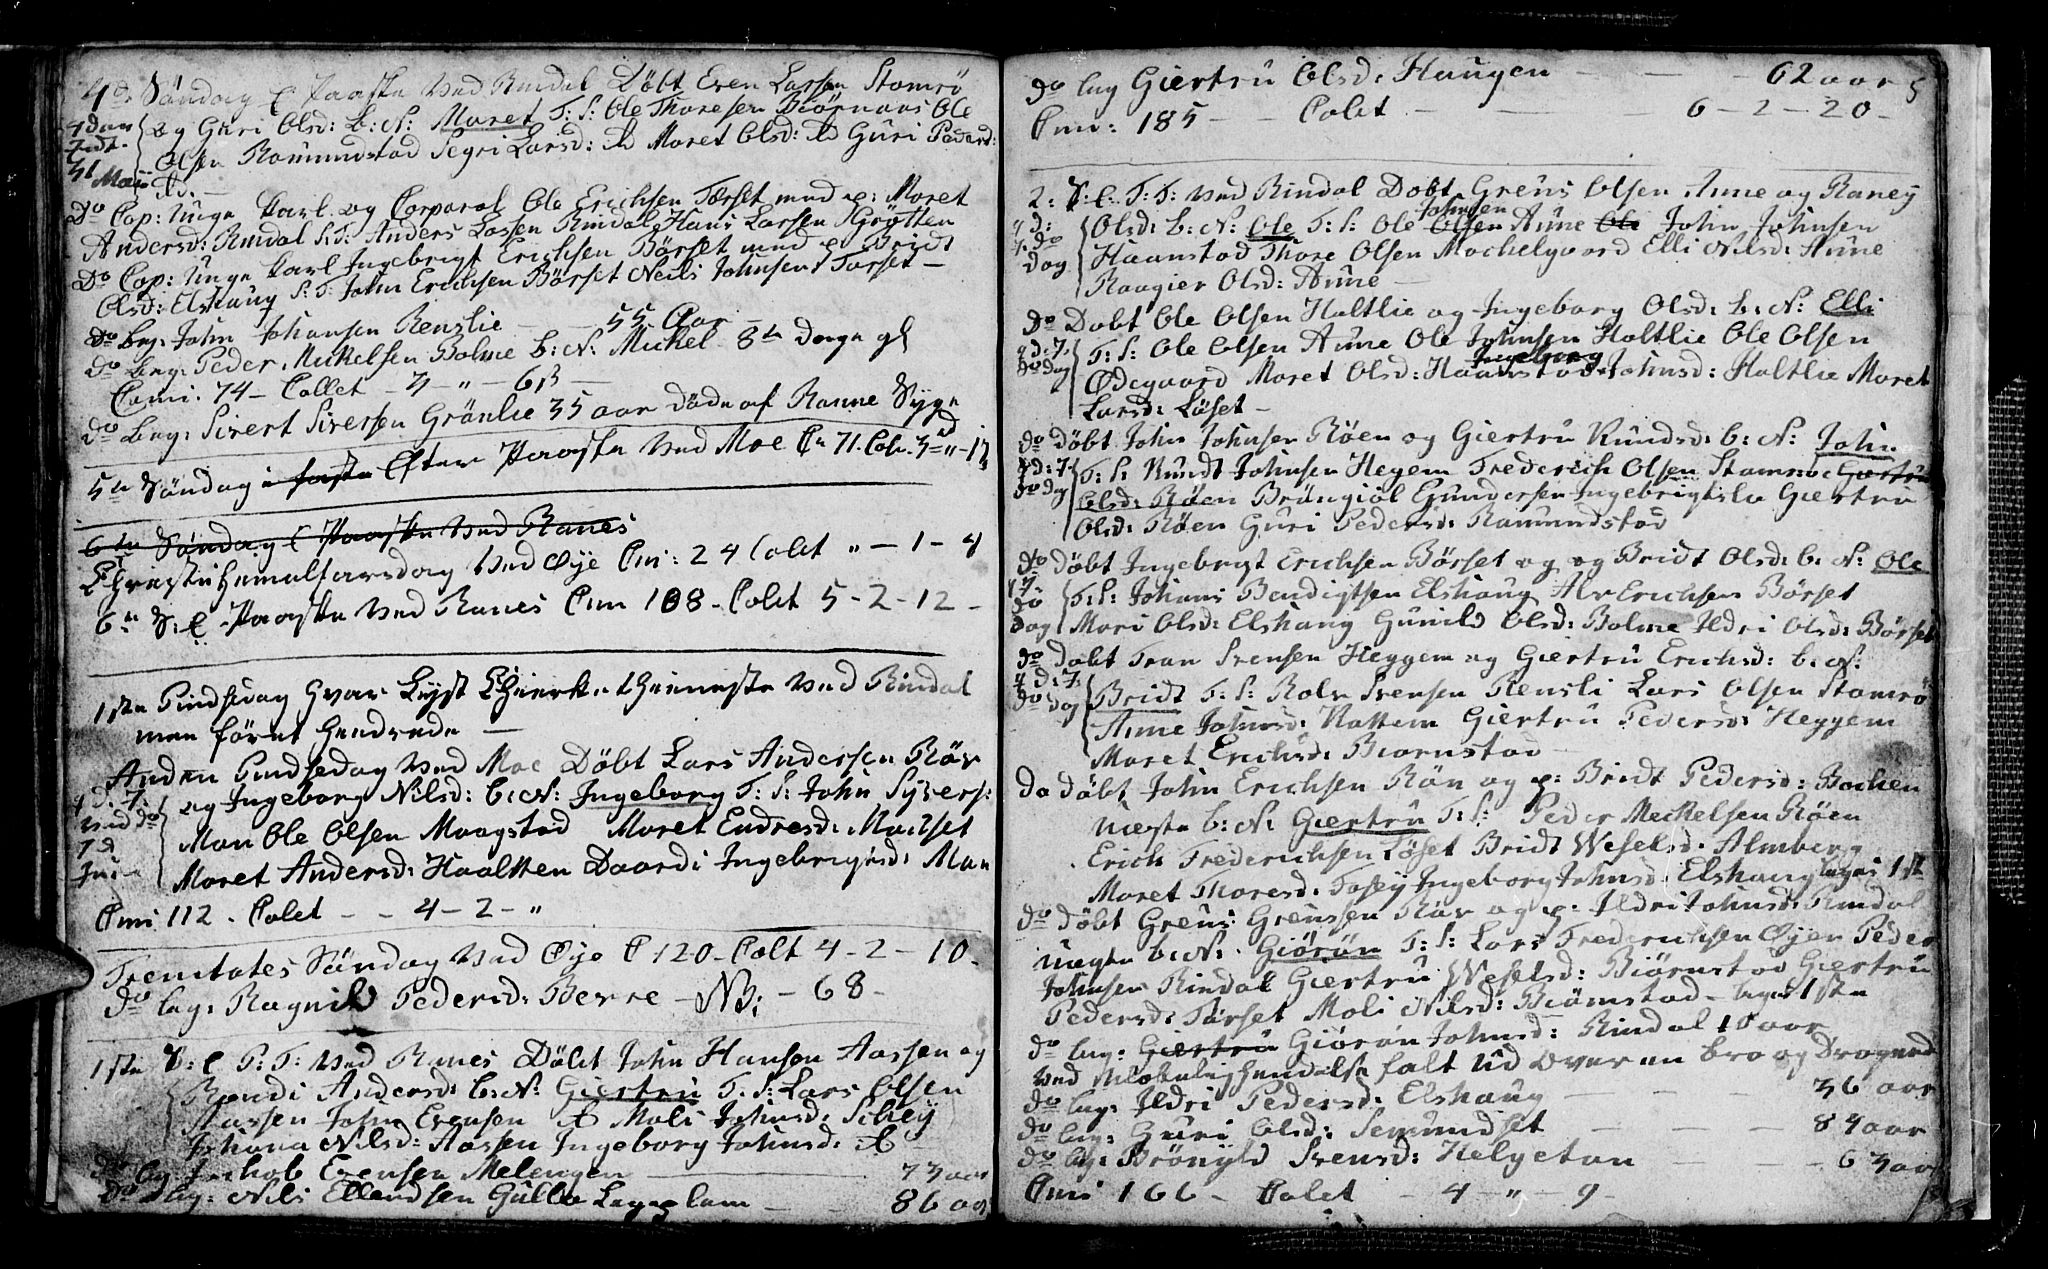 4de Søndag E Paaske ved Rindal Døbt Even Larsen Stomrö
og Guri Olsd: b: N: Maret F: S: Ole Thoresen Biörnaas Ole
4 dag
Født
31 Maii
Olsen Romundstad Segri Larsd: ib Maret Olsd: ib Guri Pedersd:
ib. —
Do Cop: Unge Karl og Corporal Ole Erichsen Torset med p: Maret
Andersd: Rindal S: F: Anders Larsen Rindal Hans Larsen Grötten
Do Cop: Unge Karl Ingebrigt Erichsen Börset med p Bridt
Olsd: Elshaug S: F: John Erichsen Börset Neils Johnsen Torset —
do beg: John Johansen Renslie — 55 Aar —
do beg: Peder Mickelsen Bolme b: N: Mickel 8te Dage gl
Comi. 74 — Collet — 3 — " — 6 β —
do beg: Sivert Siversen Grönlie 35 aar döde af Ranne Syge
5te Søndag i faste Efter Paaske ved Moe Cn 71. Col: 3 — " — 12
6te Søndag E Paaske ved Ranes
Christi Hemelfartsdag ved Øye Cmi: 24 Colet " — 1 — 4
6te S: E Paaske ved Ranes Cmi 108 — Colet 5 — 2 — 12 —
1ste Pindsedag Hvar Lyst Kierke Thieneste ved Rindal
men föret hendrede —
Anden Pindsedag ved Moe Döbt Lars Andersen Röv
og Ingeborg Nilsd: b: N: Ingeborg F: S: John Syvers:
4 d: 7:
ved do
7 d
Juni
Mon Ole Olsen Moagstad Maret Endresd: Moelset
Maret Andersd: Haaltten Daardi Ingebrigtsd: Moe
Cmi 112 — Colet — — 4 — 2 — "
Trenitates Søndag ved Øye C 120 — Colt 4 — 2 — 10 —
do beg: Ragnild Pedersd: Berre — NB: — 68 —
1ste S: E F: T: ved Ranes Döbt John Hansen Aassen og
Randi Andersd: b: N: Giertru F: S: Lars Olsen
Aassen John Evensen ib Moli Johnsd: Settey
Johana Nilsd: Aassen Ingeborg Johnsd: ib
do beg Jachob Evensen Melengen — 73 aar
do beg: Nils Ellendsen Gulle Lægslem — — 86 aar
do beg Giertru Olsd: Haugen — — — 62 aar 5
Cmi: 185 — — Colet — — — 6 — 2 — 20 —
2: S: E: F: T: ved Rindal Döbt Greus Olsen Anne og Raney
4 d:
7 do
dag
Olsd: b: N: Ole F: S: Ole Olsen Johnsen Anne Ole John Johnsen
Haanstad Thore Olsen Mochelgaard Elli Nilsd: Anne
Raagier Olsd: Anne —
do Döbt Ole Olsen Holtlie og Ingeborg Olsd: b: N: Elli
4 d: 7
do dag
F: S: Ole Olsen Aune Ole Johnsen Holtlie Ole Olsen
Ödegaard Maret Olsd: Haanstad Ingeborg Johnsd: Holtlie Maret
Larsd: Löset —
do döbt John Johnsen Röen og Giertru Knudsd: b: N: John
4 d: 7
do dag
F: S: Knudt Johnsen Hegem Frederich Olsen Stamroe Giertru
Olsd: Röen Bröngiöl Gundersen Ingebrigtslie Giertru
Olsd: Röen Guri Pedersd: Romundstad
do Döbt Ingebrigt Erichsen Börset og Bridt Olsd: b: N: Ole
4 7
do
dag
F: S: Johans Bendigtsen Elshaug Alv Erichsen Börset
Mari Olsd: Elshaug Gunild Olsd: Bolme Ildri Olsd: Börset
do döbt Tron Svensen Heggem og Giertru Erichsd: b: N:
4 d: 7
do dag
Bridt F: S: Rolv Svensen Rensli Lars Olsen Stomrö
Anne Johnsd: Nattem Giertru Pedersd: Heggem
Maret Erichsd: Biörnstad —
Do döbt John Erichsen Rön og p: Bridt Pedersd: Bochen
næste b: N: Giertru F: S: Peder Meckelsen Röen
Erich Frederichsen Löset Bridt Weselsd: Almberg
Maret Thoresd: Foseÿ Ingeborg Johnsd: Elshaug legers 1ste
do döbt Greus Greussen Röv og p: Ildri Johnsd: Rindal
næste b: N: Giörön F: S: Lars Frederichsen Öyen Peder
Johnsen Rindal Giertru Weselsd: Biörnstad Giertru
Pedersd: Törset Moli Nilsd: Biörnstad — legers 1ste
do beg: Giertru Giörön Johnsd: Rindal 10 aar
ved ulökelig hendelse falt ud over en bro og drognede
do beg: Ildri Pedersd: Elshaug — — — 36 aar
do beg: Guri Olsd: Semundset — — — 84 aar
do beg: Bröngld Svensd: Helgetun — — — 63 aar
Cmi 166 — Colet — 4 — " — 9 —